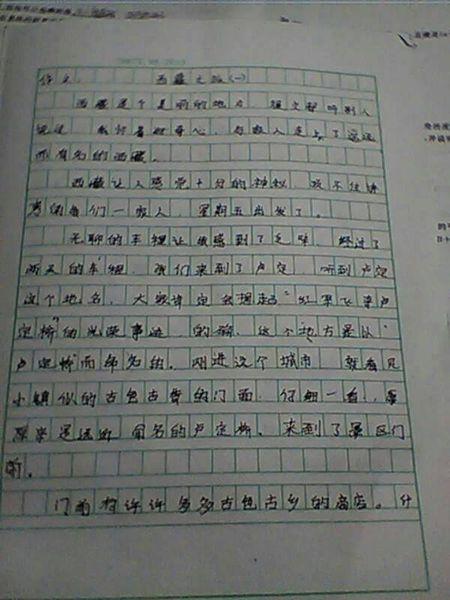 作文: 西藏之旅(一)
西藏这个美丽的地方,经文都听别人
说过,我怀着好奇心,与家人走上了遥远
而有名的西藏。
西藏让人感觉十分的神秘,攻不住诱
惑的我们一家人,星期五出发了。
无聊的车程让我感到了乏味,经过了
两天的车程,我们来到了卢定,听到卢定
这个地名,大家肯定会想起"红军飞夺卢
定桥"的光荣事迹,的确,这个地方是以
"卢定桥"而命名的。刚进这个城市,就看见
小镇似的古色古香的门面,仔细一看,原
来是远近闻名的卢定桥。来到了景区门
前。
门前有许许多多古色古乡的商店。什